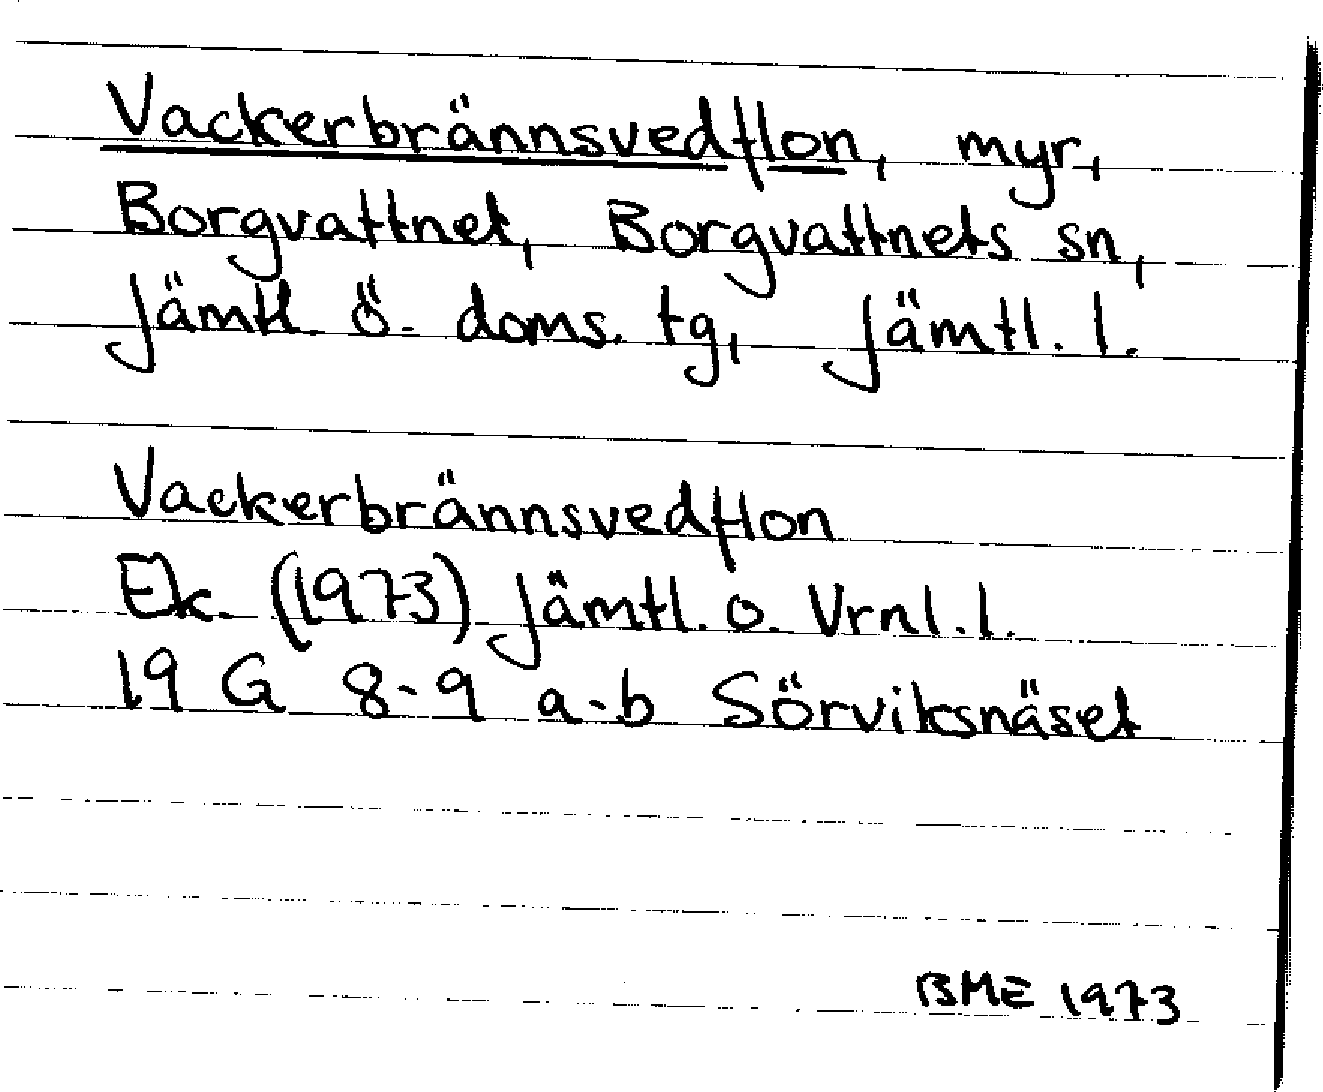 Vackerbrännsvedflon, myr,
Borgvattnet, Borgvattnets sn,
Jämtl. ö. doms. tg, Jämtl. l.
Vackerbrännsvedflon
Ek. (1973) Jämtl. o. Vrnl. l.
19 G 8-9 a-b Sörviksnäset
BME 1973